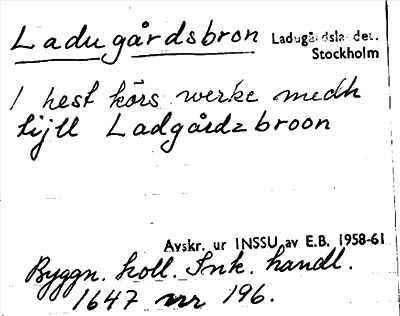 Ladugårdsbron
Ladugårdslandet.
Stockholm
1 hest körs werke medh
tijll Ladgårdzbroon
Avskr. ur INSSU av E.B. 1958-61
Byggn. koll. Ink. handl.
1647 nr 196.